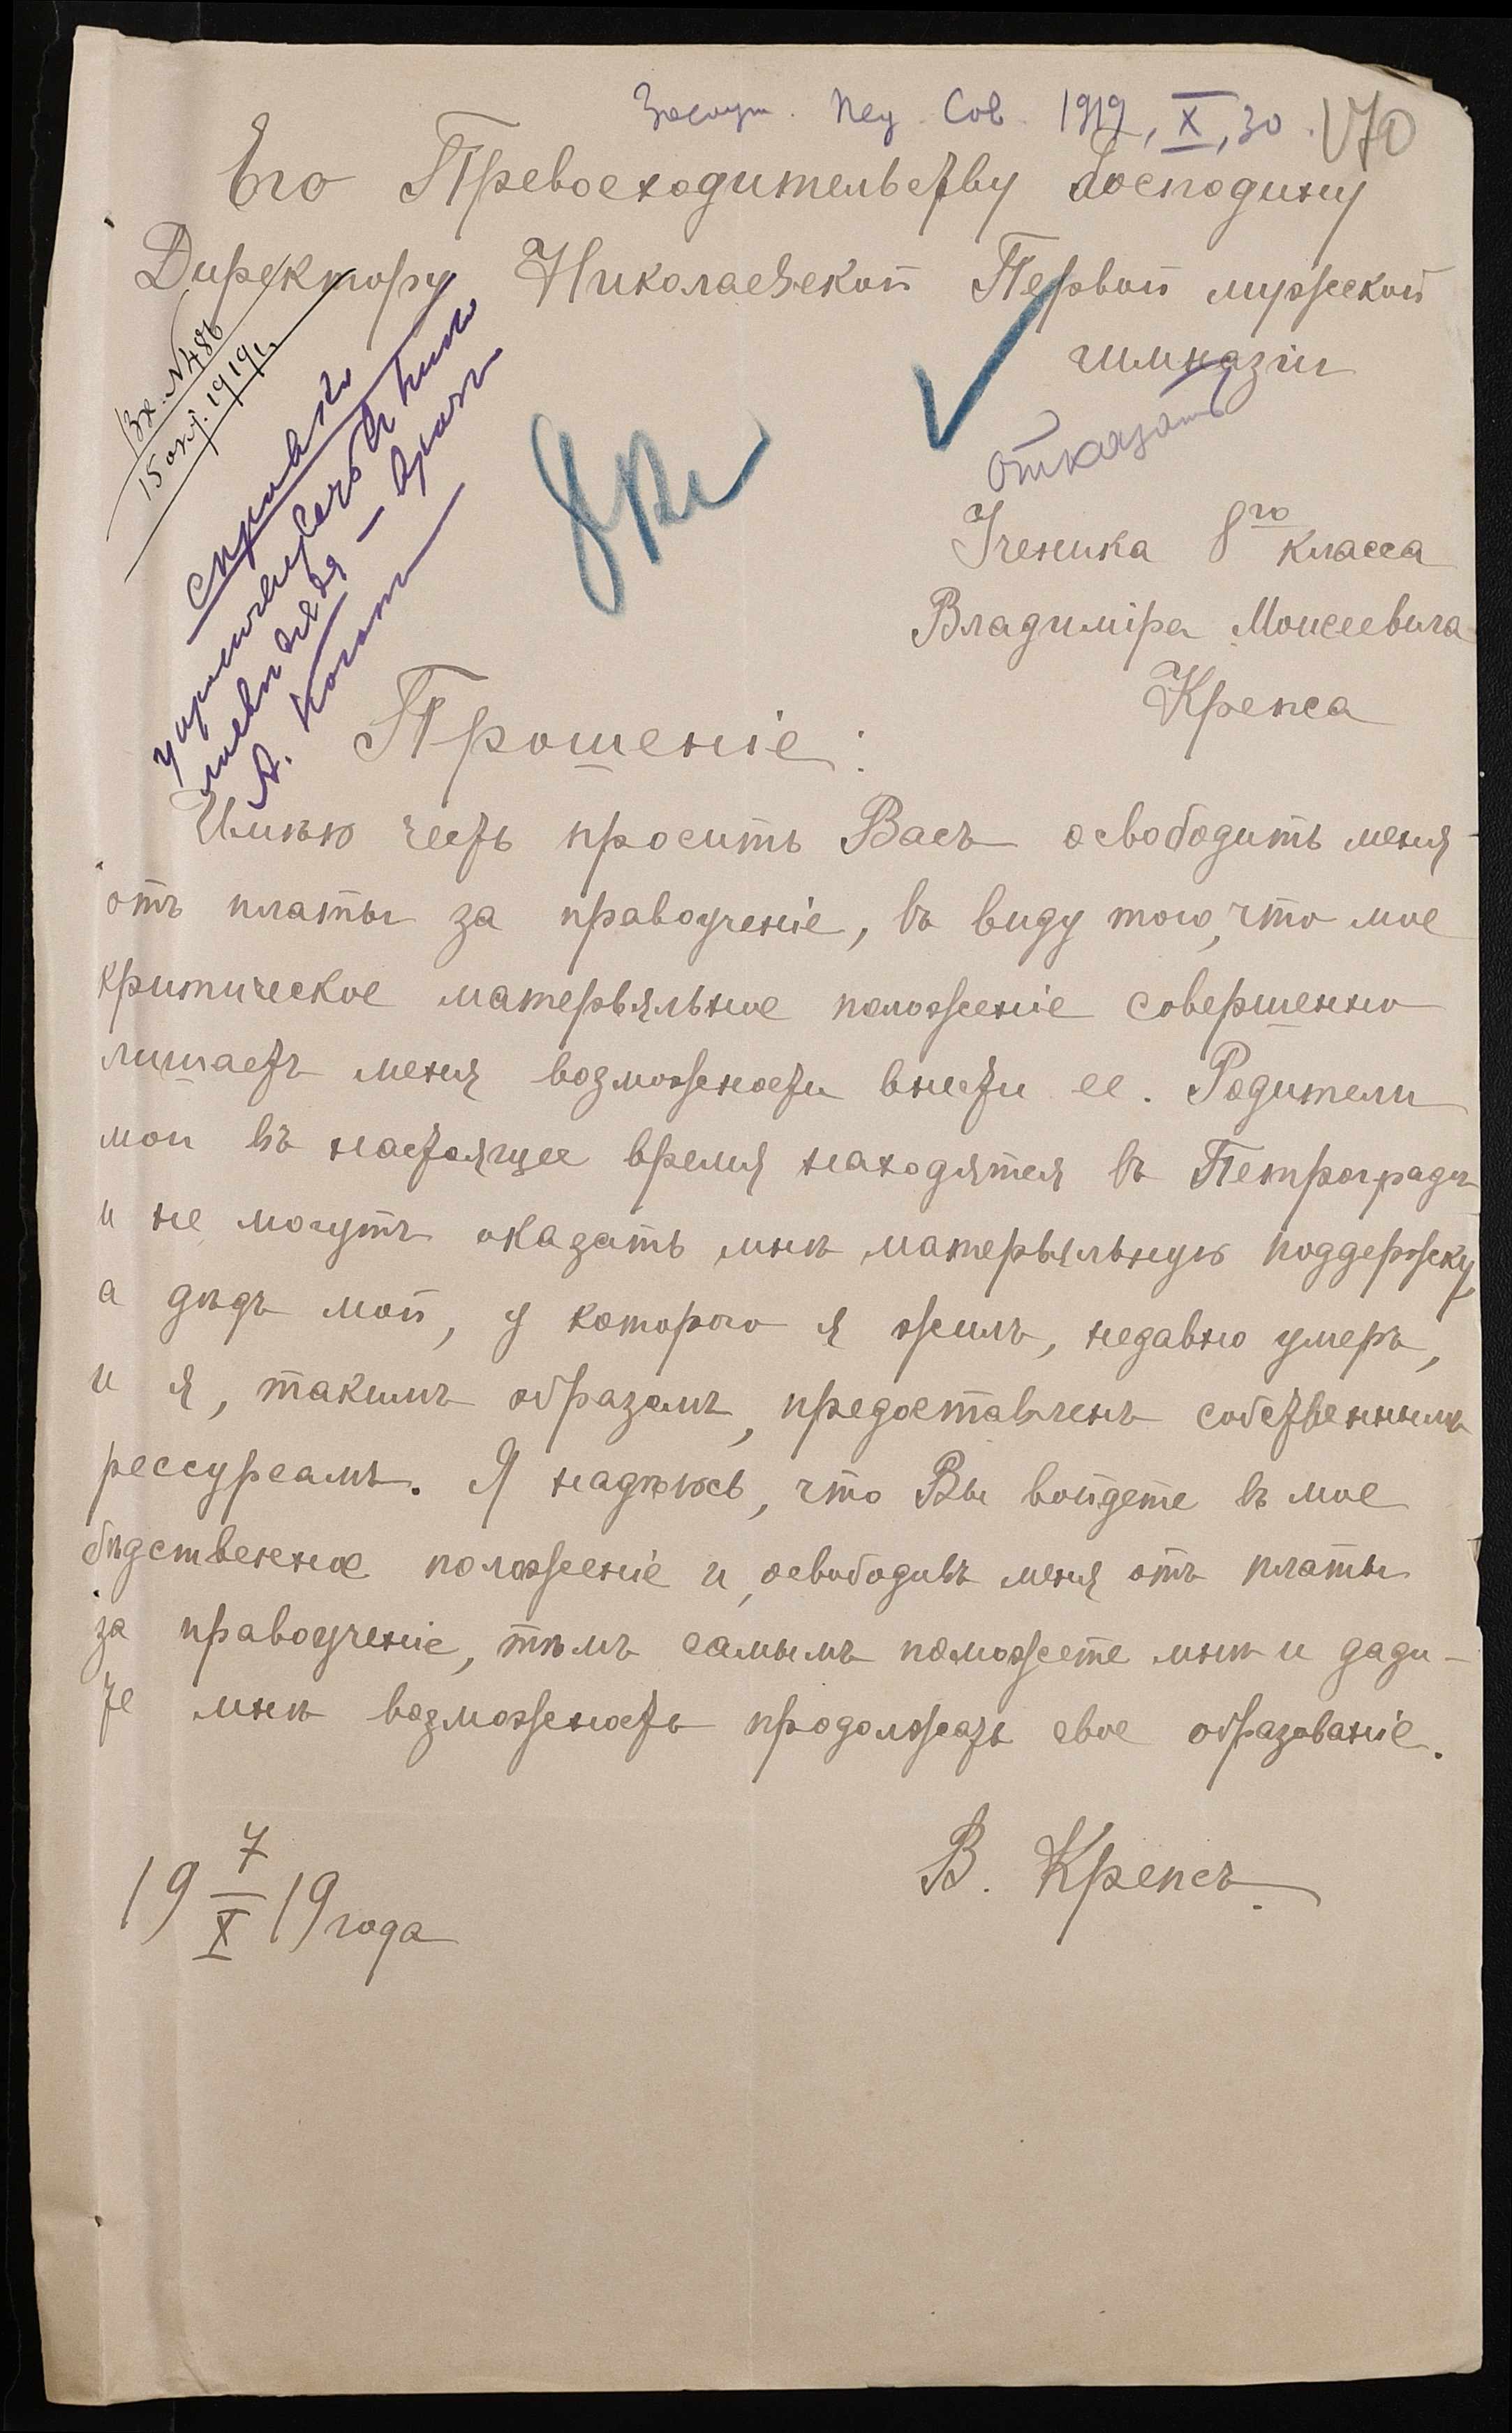 Заслуш. Пед. Сов. 1919, X, 30. 170
Его Превосходительству Господину
Директору Николаевской Первой мужской
гимназіи
Вх. N 486
15 окт. 1919 г.
справка
отказать
8 кл
Ученика 8го класса
Владиміра Моисеевича
Крепса
А. Коган
Прошеніе:
Имѣю честь просить Васъ освободить меня
отъ платы за правоученіе, въ виду того, что мое
критическое матерьяльное положеніе совершенно
лишаетъ меня возможности внести ее. Родители
мои въ настоящее время находятся въ Петроградѣ
и не могутъ оказать мнѣ матерьяльную поддержку,
а дѣдъ мой, у которого я жилъ, недавно умеръ,
и я, такимъ образомъ, предоставленъ собственнымъ
рессурсамъ. Я надѣюсь, что Вы войдете въ мое
бѣдственное положеніе и, освободивъ меня отъ платы
за правоученіе, тѣмъ самымъ поможете мнѣ и дади-
те мнѣ возможность продолжать свое образованіе.
В. Крепсъ.
19 7/X 19 года